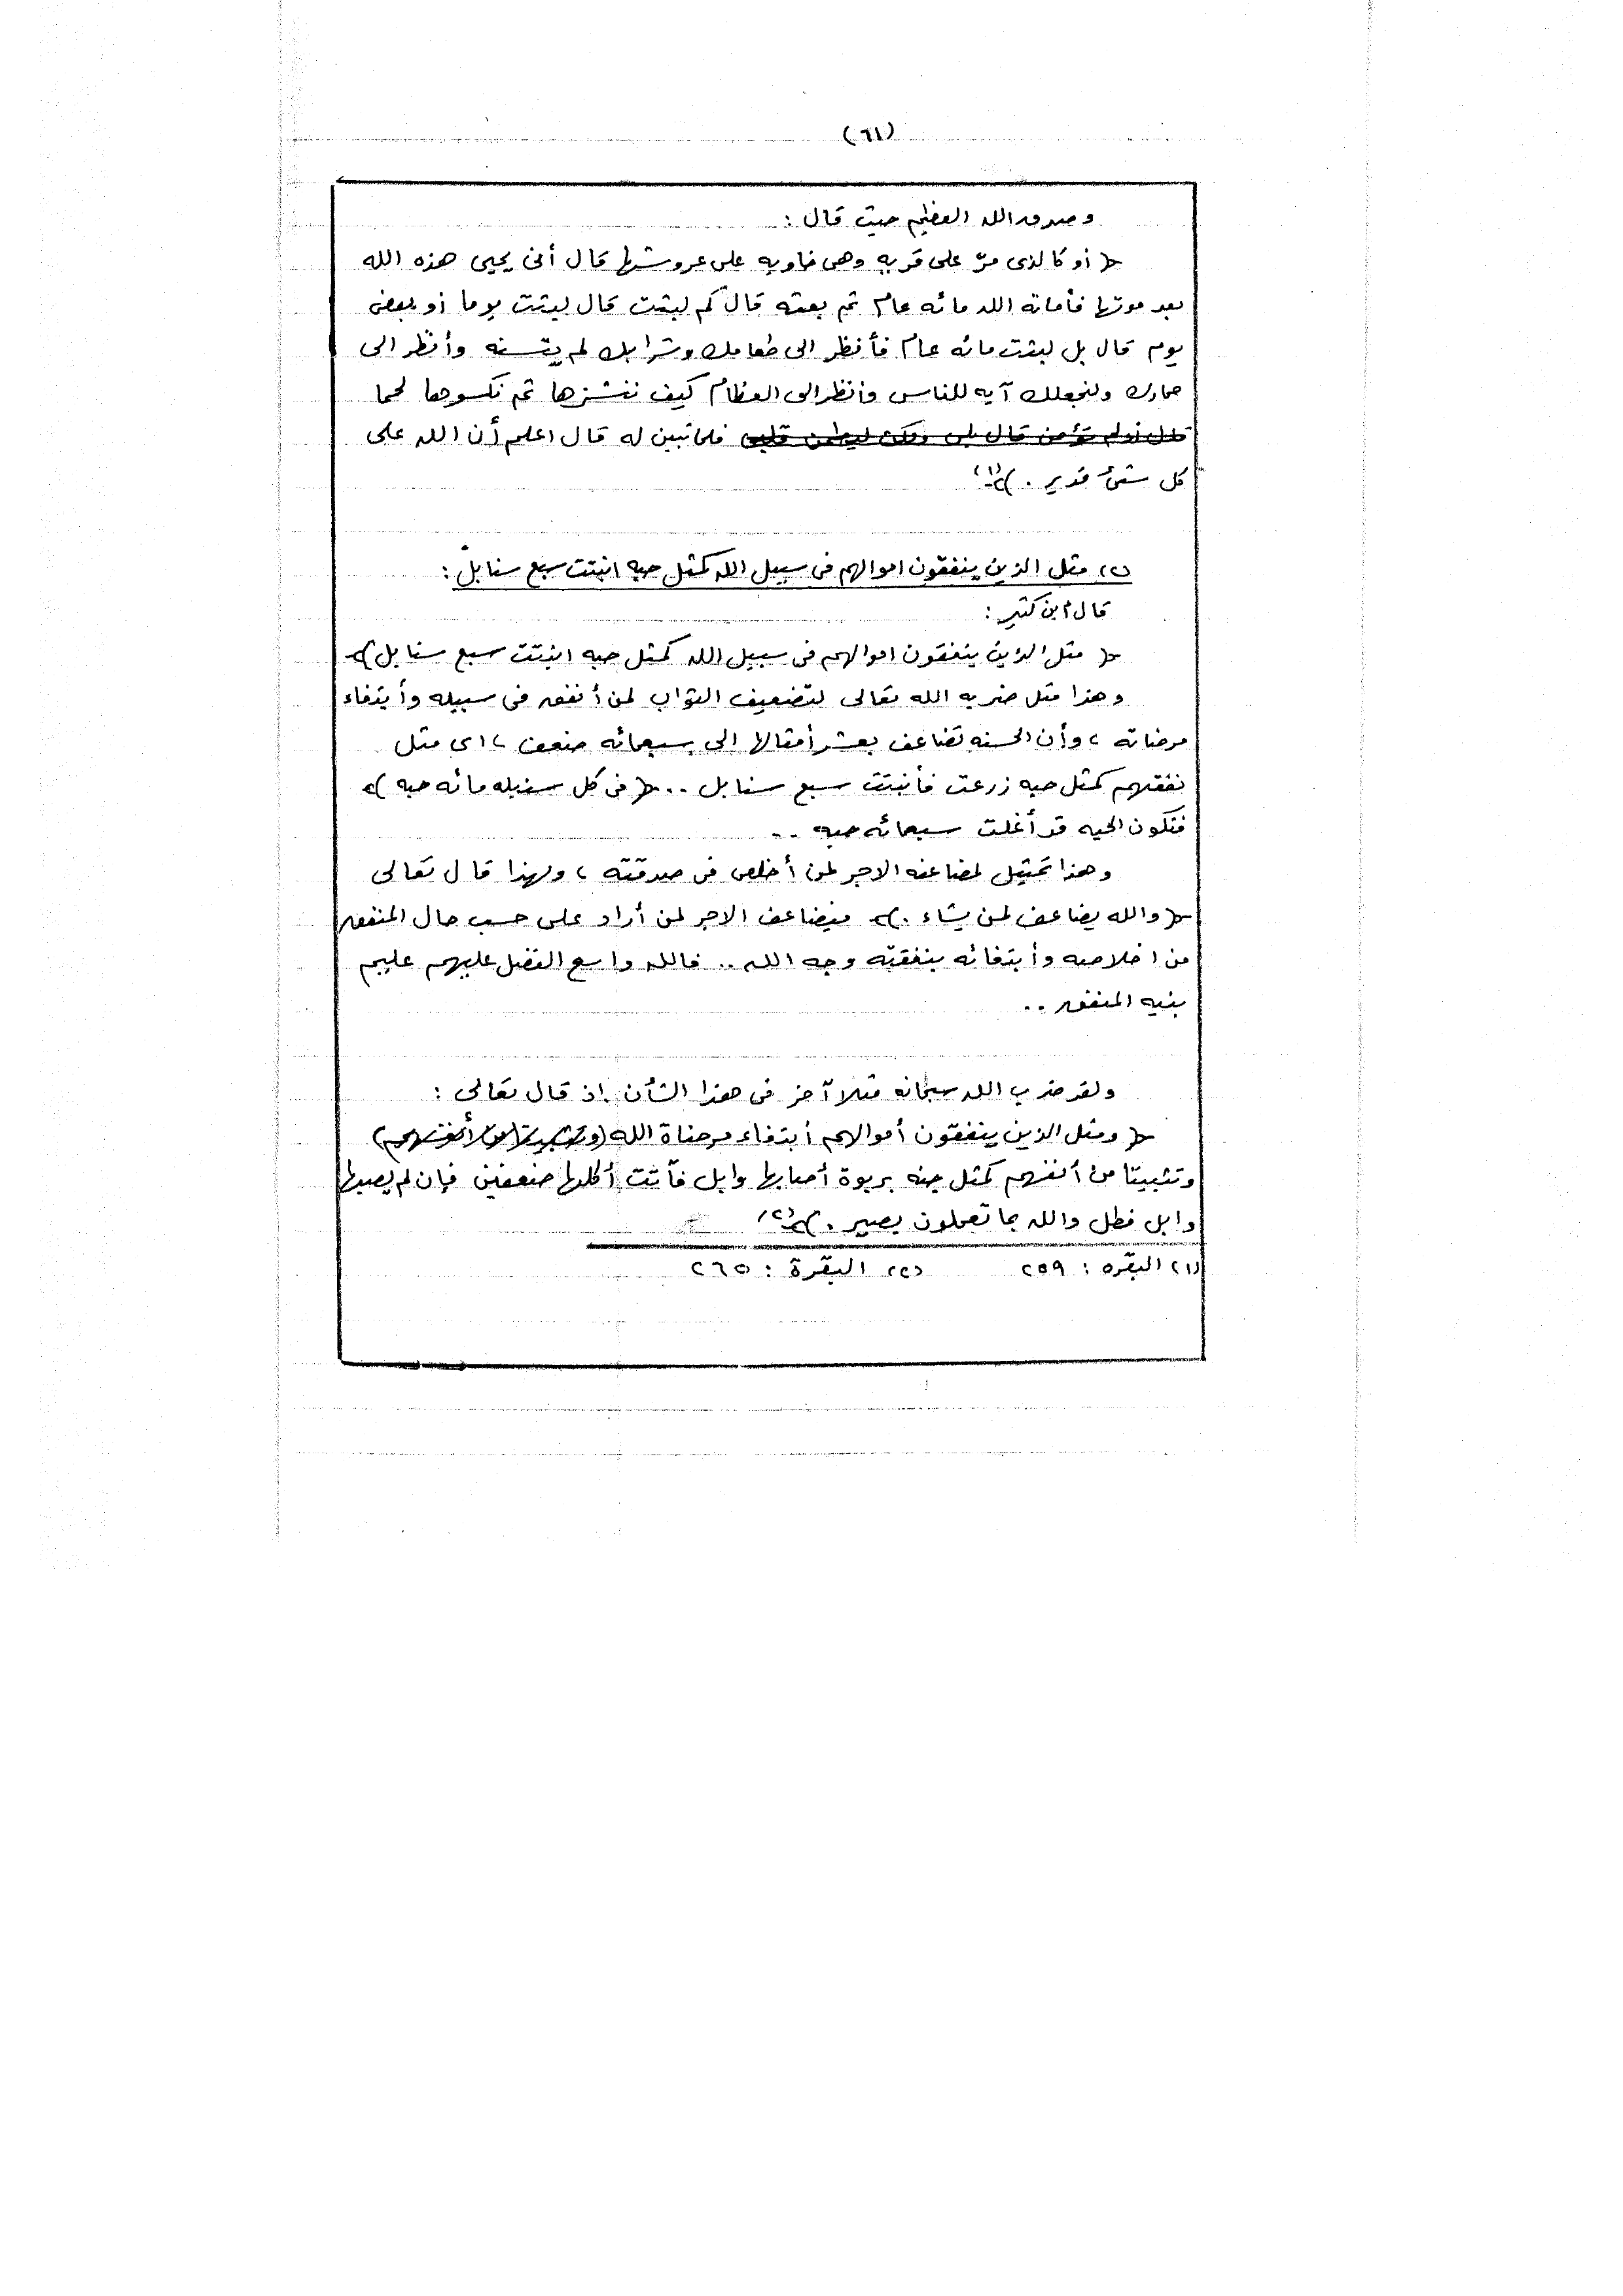 (٦١)
وصدق الله العظيم حيث قال :
﴿ أو كالذى مرّ على قريه وهى خاويه على عروشها قال أنى يحيى هذه الله
بعد موتها فأماته الله مائه عام ثم بعثه قال كم لبثت قال لبثت يوما أو بعض
يوم قال بل لبثت مائه عام فأنظر الى طعامك وشرابك لم يتسنه وأنظر الى
حمارك ولنجعلك آيه للناس وأنظر الى العظام كيف ننشزها ثم نكسوها لحما
قال أولم تؤمن قال بلى ولكن ليطمن قلبى فلما تبين له قال اعلم أن الله على
كل شئ قدير . ﴾(١)
(٢) مثل الذين ينفقون اموالهم فى سبيل الله كمثل حبه انبتت سبع سنابل :
قال ابن كثير :
﴿ مثل الذين ينفقون اموالهم فى سبيل الله كمثل حبه انبتت سبع سنابل ﴾
وهذا مثل ضربه الله تعالى لتضعيف الثواب لمن أنفق فى سبيله وأبتغاء
مرضاته ، وأن الحسنه تضاعف بعشر أمثالها الى سبعمائه ضعف ، اى مثل
نفقتهم كمثل حبه زرعت فأنبتت سبع سنابل .. ﴿ فى كل سنبله مائه حبه ﴾
فتكون الحبه قد أغلت سبعمائه حبه ..
وهذا تمثيل لمضاعفه الاجر لمن أخلص فى صدقته ، ولهذا قال تعالى
﴿ والله يضاعف لمن يشاء . ﴾ فيضاعف الاجر لمن أراد على حسب حال المنفق
من اخلاصه وأبتغائه بنفقته وجه الله .. فالله واسع الفضل عليهم عليم
بنيه المنفق ..
ولقد ضرب الله سبحانه مثلا آخر فى هذا الشأن إذ قال تعالى :
﴿ ومثل الذين ينفقون أموالهم أبتغاء مرضاة الله (وتثبيتا من أنفسهم)
وتثبيتا من أنفسهم كمثل جنه بربوة أصابها وابل فآتت أكلها ضعفين فإن لم يصبها
وابل فطل والله بما تعملون بصير . ﴾(٢)
(١) البقره : ٢٥٩ (٢) البقرة : ٢٦٥